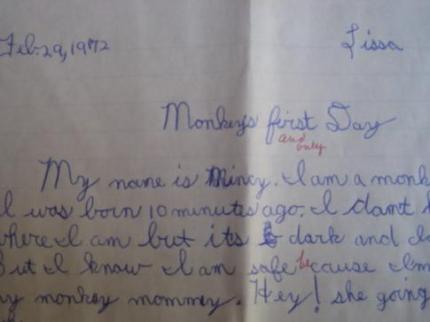 Feb. 29, 1972 Lissa
Monkeys first Day
and only
My name is Mincy. I am a monk
I was born 10 minutes ago. I don't
where I am but its dark and I
But I know I am safe because I'm
my monkey mommy. Hey! she going